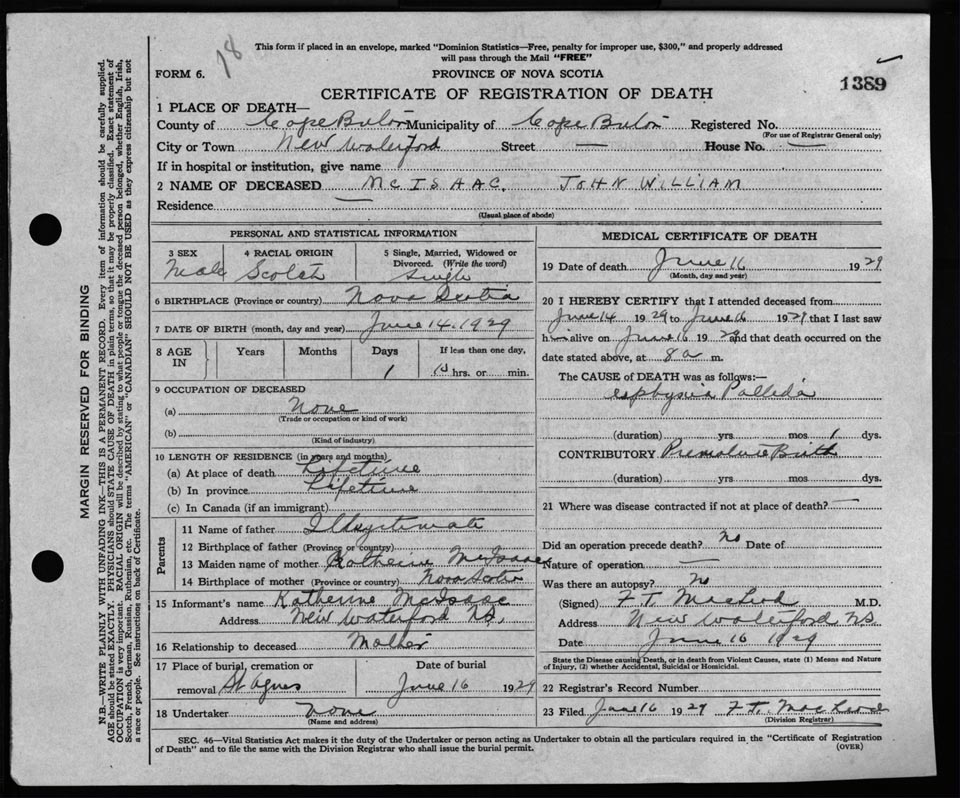 18
This form if placed in an envelope, marked "Dominion Statistics—Free, penalty for improper use, $300," and properly addressed
will pass through the Mail "FREE"
FORM 6.
PROVINCE OF NOVA SCOTIA
1389
CERTIFICATE OF REGISTRATION OF DEATH
1 PLACE OF DEATH—
County of Cape Breton Municipality of Cape Breton Registered No.
(For use of Registrar General only)
City or Town New Waterford Street — House No. —
If in hospital or institution, give name
2 NAME OF DECEASED McISAAC, JOHN WILLIAM
Residence —
(Usual place of abode)
PERSONAL AND STATISTICAL INFORMATION
3 SEX Male
4 RACIAL ORIGIN Scotch
5 Single, Married, Widowed or
Divorced. (Write the word)
Single
6 BIRTHPLACE (Province or country) Nova Scotia
7 DATE OF BIRTH (month, day and year) June 14. 1929
8 AGE
IN
Years Months Days If less than one day,
1 hrs. or min.
9 OCCUPATION OF DECEASED
(a) None
(Trade or occupation or kind of work)
(b)
(Kind of industry)
10 LENGTH OF RESIDENCE (in years and months)
(a) At place of death Lifetime
(b) In province Lifetime
(c) In Canada (if an immigrant)
Parents
11 Name of father Illegitimate
12 Birthplace of father (Province or country)
13 Maiden name of mother Katherine McIsaac
14 Birthplace of mother (Province or country) Nova Scotia
15 Informant's name Katherine McIsaac
Address New Waterford N.S.
16 Relationship to deceased Mother
17 Place of burial, cremation or
removal St Agnes
Date of burial
June 16 1929
18 Undertaker None
(Name and address)
MEDICAL CERTIFICATE OF DEATH
19 Date of death June 16 1929
(Month, day and year)
20 I HEREBY CERTIFY that I attended deceased from
June 14 1929 to June 16 1929 that I last saw
him alive on June 16 1929 and that death occurred on the
date stated above, at 8 a m.
The CAUSE of DEATH was as follows:—
asphyxia Pallida
(duration) yrs mos 1 dys.
CONTRIBUTORY Premature Birth
(duration) yrs. mos. dys.
21 Where was disease contracted if not at place of death? —
Did an operation precede death? No Date of
Nature of operation —
Was there an autopsy? No
(Signed) F. T. MacLeod M.D.
Address New Waterford N.S.
Date June 16 1929
State the Disease causing Death, or in death from Violent Causes, state (1) Means and Nature
of Injury, (2) whether Accidental, Suicidal or Homicidal.
22 Registrar's Record Number
23 Filed June 16 1929 F. T. MacLeod
(Division Registrar)
SEC. 46—Vital Statistics Act makes it the duty of the Undertaker or person acting as Undertaker to obtain all the particulars required in the "Certificate of Registration
of Death" and to file the same with the Division Registrar who shall issue the burial permit.
(OVER)
MARGIN RESERVED FOR BINDING
N.B.—WRITE PLAINLY WITH UNFADING INK—THIS IS A PERMANENT RECORD. Every item of information should be carefully supplied.
AGE should be stated EXACTLY. PHYSICIANS should STATE CAUSE OF DEATH in plain terms, so that it may be properly classified. Exact statement of
OCCUPATION is very important. RACIAL ORIGIN will be described by stating to what people or tongue the deceased person belonged, whether English, Irish,
Scotch, French, German, Russian, Ruthenian, etc. The terms "AMERICAN" or "CANADIAN" SHOULD NOT BE USED as they express citizenship but not
a race or people. See instructions on back of Certificate.